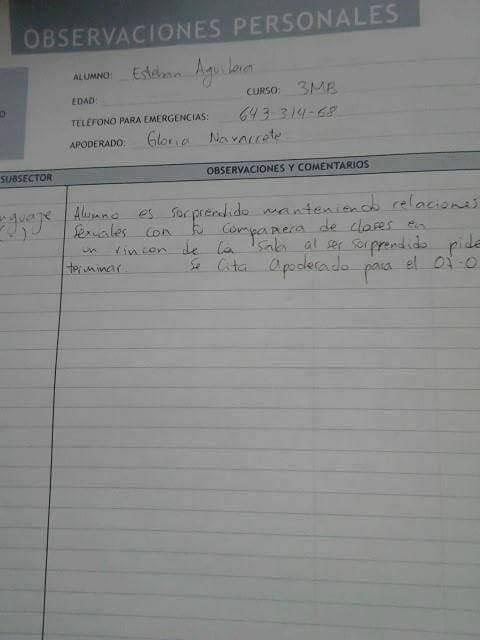 OBSERVACIONES PERSONALES
ALUMNO: Esteban Aguilera
EDAD: CURSO: 3MB
TELÉFONO PARA EMERGENCIAS: 643-314-68
APODERADO: Gloria Navarrete
SUBSECTOR OBSERVACIONES Y COMENTARIOS
nguaje Alumno es sorprendido manteniendo relaciones
sexuales con compañera de clases en
un rincon de la sala al ser sorprendido pide
terminar. Se Cita Apoderado para el 07-0